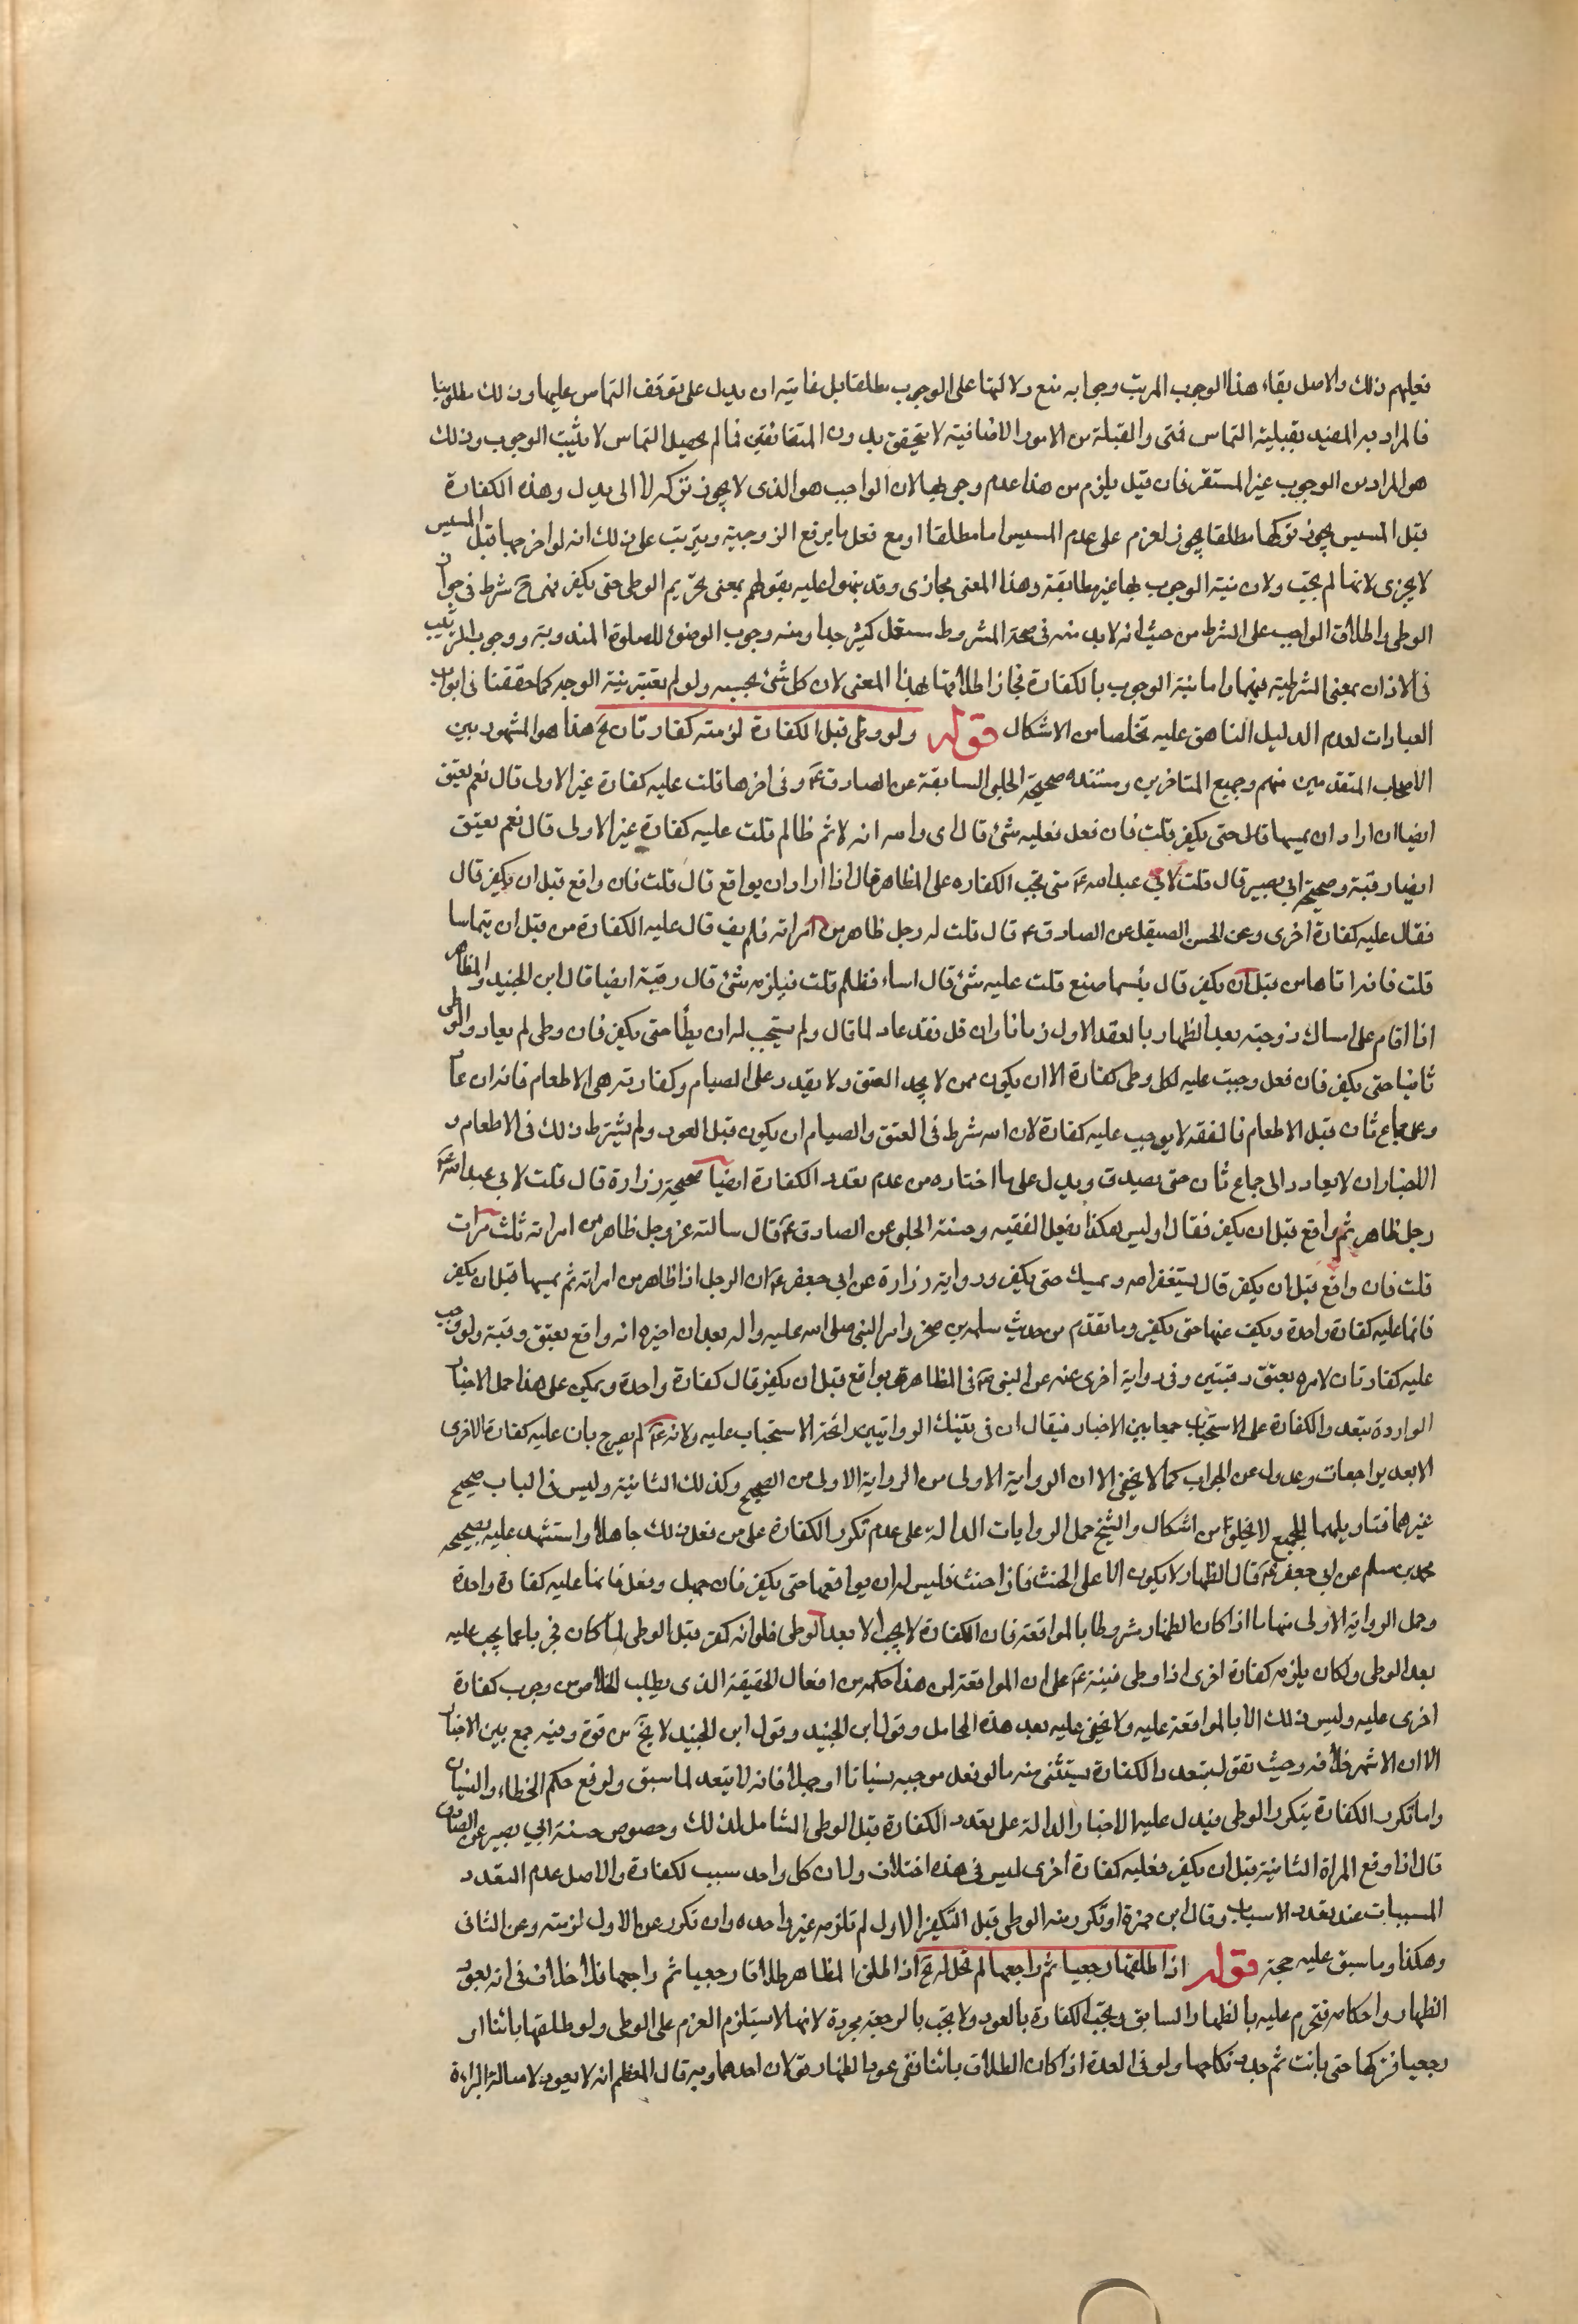 فعليهم ذلك والاصل بقاء هذا الوجوب المرتب وجوابه منع دلالتها على الوجوب مطلقا بل غايته ان يدل على توقف التماس عليها وذلك مطلوبنا
فالمراد به المقيد بقبلية التماس فمتى والقبلية من الامور الاضافية لا يتحقق بدون المتضائفين فما لم يحصل التماس لا يثبت الوجوب وذلك
هو المراد من الوجوب غير المستقر فان قيل يلزم من هذا عدم وجوبها لان الواجب هو الذى لا يجوز تركه لا الى بدل وهذه الكفارة
قبل المسيس يجوز تركها مطلقا يجوز لعزم على عدم المسيس اما مطلقا او مع فعل ما يرفع الزوجية ويترتب على ذلك انه لو اخرجها قبل المسيس
لا يجزى لانها لم تجب ولان نية الوجوب بها غير مطابقة وهذا المعنى مجازى وقد نبهوا عليه بقولهم بمعنى تحريم الوطى حتى يكفر فهى ح شرط فى جواز
الوطى واطلاق الواجب على الشرط من حيث انه لا بد منه فى صحة المشروط مستعمل كثير جدا ومنه وجوب الوضوء للصلوة المندوبة ووجوب الترتيب
فى الاذان بمعنى الشرطية فيهما واما نية الوجوب بالكفارة فجاز اطلاقها بهذا المعنى لان كل شئ بحسبه ولو لم نعتبر نية الوجه كما حققنا فى ابواب
العبارات لعدم الدليل الناهض عليه تخلصا من الاشكال قوله ولو وطى قبل الكفارة لزمته كفارتان الخ هذا هو المشهور بين
الاصحاب المتقدمين منهم وجميع المتاخرين ومستنده صحيحة الحلبى السابقة عن الصادق ع وفى اخرها قلت عليه كفارة غير الاولى قال نعم يعتق
ايضا ان اراد ان يمسها قال حتى يكفر قلت فان فعل فعليه شئ قال اى والله انه لاثم ظالم قلت عليه كفارة غير الاولى قال نعم يعتق
ايضا رقبة وصحيحة ابى بصير قال قلت لابى عبد الله ع متى تجب الكفاره على المظاهر قال اذا اراد ان يواقع قال قلت فان واقع قبل ان يكفر قال
فقال عليه كفارة اخرى وعن الحسن الصيقل عن الصادق ع قال قلت له رجل ظاهر من امراته فلم يف قال عليه الكفارة من قبل ان يتماسا
قلت فانه اتاها من قبل ان يكفر قال بئسما صنع قلت عليه شئ قال اساء وظلم قلت فيلزمه شئ قال رقبة ايضا قال ابن الجنيد والمظاهر
اذا اقام على امساك زوجته بعد الظهار بالعقد الاول زمانا وان قل فقد عاد لما قال ولم يستحب له ان يطأ حتى يكفر فان وطى لم يعاد والوطى
ثانيا حتى يكفر فان فعل وجبت عليه لكل وطى كفارة الا ان يكون ممن لا يجد العتق ولا يقدر على الصيام وكفارته هى الاطعام فانه ان عاد
وعلى جماع ثان قبل الاطعام فالفقه لا يوجب عليه كفارة لان الله شرط فى العتق والصيام ان يكون قبل العود ولم يشترط ذلك فى الاطعام و
الاختيار ان لا يعاود الى جماع ثان حتى يصدق ويدل على ما اختاره من عدم تعدد الكفارة ايضا صحيحة زرارة قال قلت لابى عبد الله ع
رجل ظاهر ثم واقع قبل ان يكفر فقال اوليس هكذا يفعل الفقيه وحسنة الحلبى عن الصادق ع قال سالته عن رجل ظاهر من امراته ثلث مرات
قلت فان واقع قبل ان يكفر قال يستغفر الله ويمسك حتى يكفر ورواية زرارة عن ابى جعفر ع ان الرجل اذا ظاهر من امراته ثم يمسها قبل ان يكفر
فانما عليه كفارة واحدة ويكف عنها حتى يكفر وما تقدم من حديث سلمة بن صخر وامر النبى صلى الله عليه واله بعد ان اخبره انه واقع بعتق رقبة ولو وجب
عليه كفارتان لامره بعتق رقبتين وفى رواية اخرى عنه عن النبى ص فى المظاهر يواقع قبل ان يكفر قال كفارة واحدة ويمكن على هذا حمل الاخبار
الواردة بتعدد الكفارة على الاستحباب جمعا بين الاخبار فيقال ان فى تينك الروايتين رائحة الاستحباب عليه ولانه ع لم يصرح بان عليه كفارة الاخرى
الا بعد مراجعات وعدول عن الجواب كما لا يخفى الا ان الرواية الاولى من الصحيح وكذلك الثانية وليس فى الباب صحيح
غيرهما فتاويلهما للجمع لا يخلو من اشكال والشيخ حمل الروايات الدالة على عدم تكرر الكفارة على من فعل ذلك جاهلا واستشهد عليه بصحيحه
محمد بن مسلم عن ابى جعفر ع قال الظهار لا يكون الا على الحنث فاذا حنث فليس له ان يواقعها حتى يكفر فان جهل وفعل فانما عليه كفارة واحدة
وحمل الرواية الاولى منها ما اذا كان الظهار مشروطا بالمواقعة فان الكفارة لا يجب الا بعد الوطى فلو انه كفر قبل الوطى لما كان مجزيا عما يجب عليه
بعد الوطى ولكان يلزمه كفارة اخرى اذا وطى فنبه ع على ان المواقعة لمن هذا حكمه من افعال الحقيقة الذى يطلب الخلاص من وجوب كفارة
اخرى عليه وليس ذلك الا بالمواقعة عليه ولا يخفى عليه بعد هذه المحامل وقول ابن الجنيد وقول ابن الجنيد لا يخ من قوة وفيه جمع بين الاخبار
الا ان الاشهر خلافه وحيث نقول بتعدد الكفارة يستثنى منه ما لو فعل موجبه نسيانا او جهلا فانه لا يتعدد لما سبق ولرفع حكم الخطاء والنسيان
واما تكرر الكفارة بتكرر الوطى فيدل عليه الاخبار الدالة على تعدد الكفارة قبل الوطى الشامل لذلك وخصوص حسنة ابى بصير عن الصادق
قال اذا وقع المراة الثانية قبل ان يكفر فعليه كفارة اخرى ليس فى هذه اختلاف ولان كل واحد سبب لكفارة والاصل عدم التعدد
المسببات عند تعدد الاسباب وقال ابن حمزة او تكرر منه الوطى قبل التكفير الاول لم تلزمه غير واحده وان تكرر عن الاول لزمته وعن الثانى
وهكذا وما سبق عليه حجة قوله اذا طلقها رجعيا ثم راجعها لم تحل له الخ اذا طلق المظاهر طلاقا رجعيا ثم راجعها فلا خلاف فى انه يعود
الظهار واحكامه فتحرم عليه بالظهار السابق ويجب الكفارة بالعود ولا يجب بالرجعة مجردة لانها لا يستلزم العزم على الوطى ولو طلقها بائنا او
رجعيا فتركها حتى بانت ثم جدد نكاحها ولو فى العدة اذا كان الطلاق بائنا ففى عود الظهار قولان احدهما وبه قال المعظم انه لا يعود لاصالة البراءة